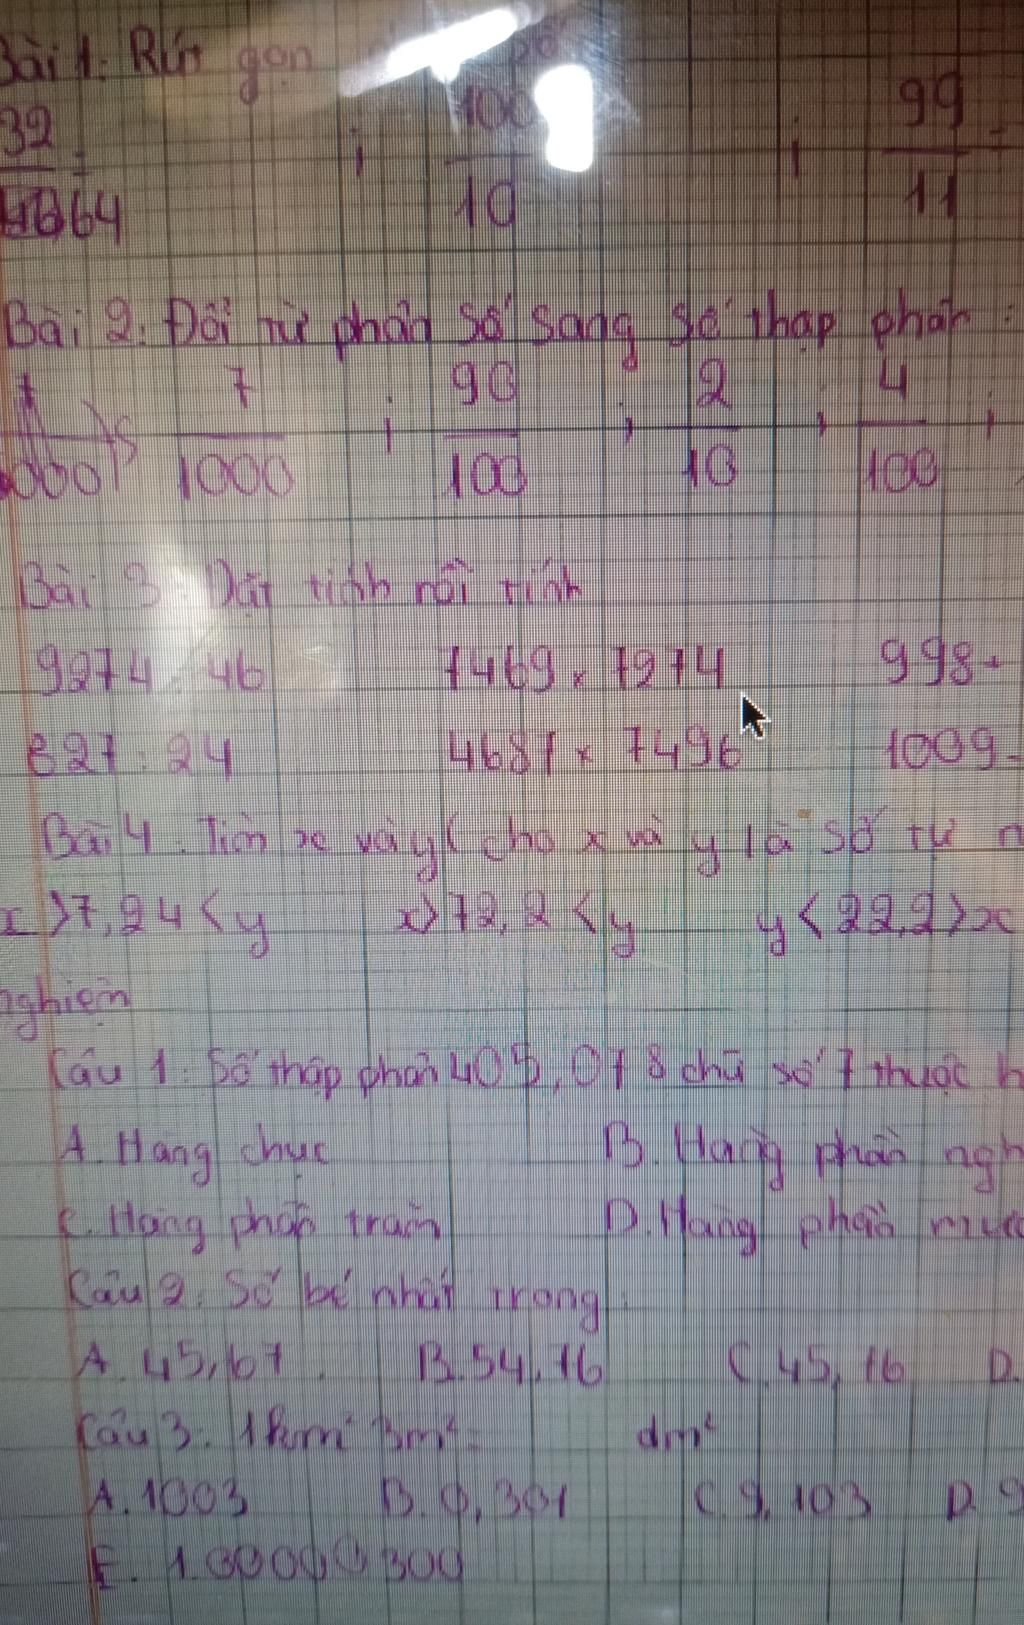 Bài 1: Rút gọn
32/64 ; 100/10 ; 99/11 =
Bài 2. Đổi từ phân số sang số thập phân:
7/1000 ; 90/100 ; 2/10 ; 4/100 ;
Bài 3: Đặt tính rồi tính
9274 : 46 7469 x 7274 998
827 : 24 4687 x 7496 1009
Bài 4. Tìm x và y ( cho x và y là số tự
x > 7,24 < y x > 72,2 < y y < 22,2 > x
nghiệm
Câu 1: Số thập phân 405,078 chữ số 7 thuộc
A. Hàng chục B. Hàng phần
C. Hàng phần trăm D. Hàng phần
Câu 2: Số bé nhất trong:
A. 45,67 B. 54,76 C. 45,16 D.
Câu 3: 1km² 3m² = dm²
A. 1003 B. 0,301 C. 9,103 D.
E. 1.00000300